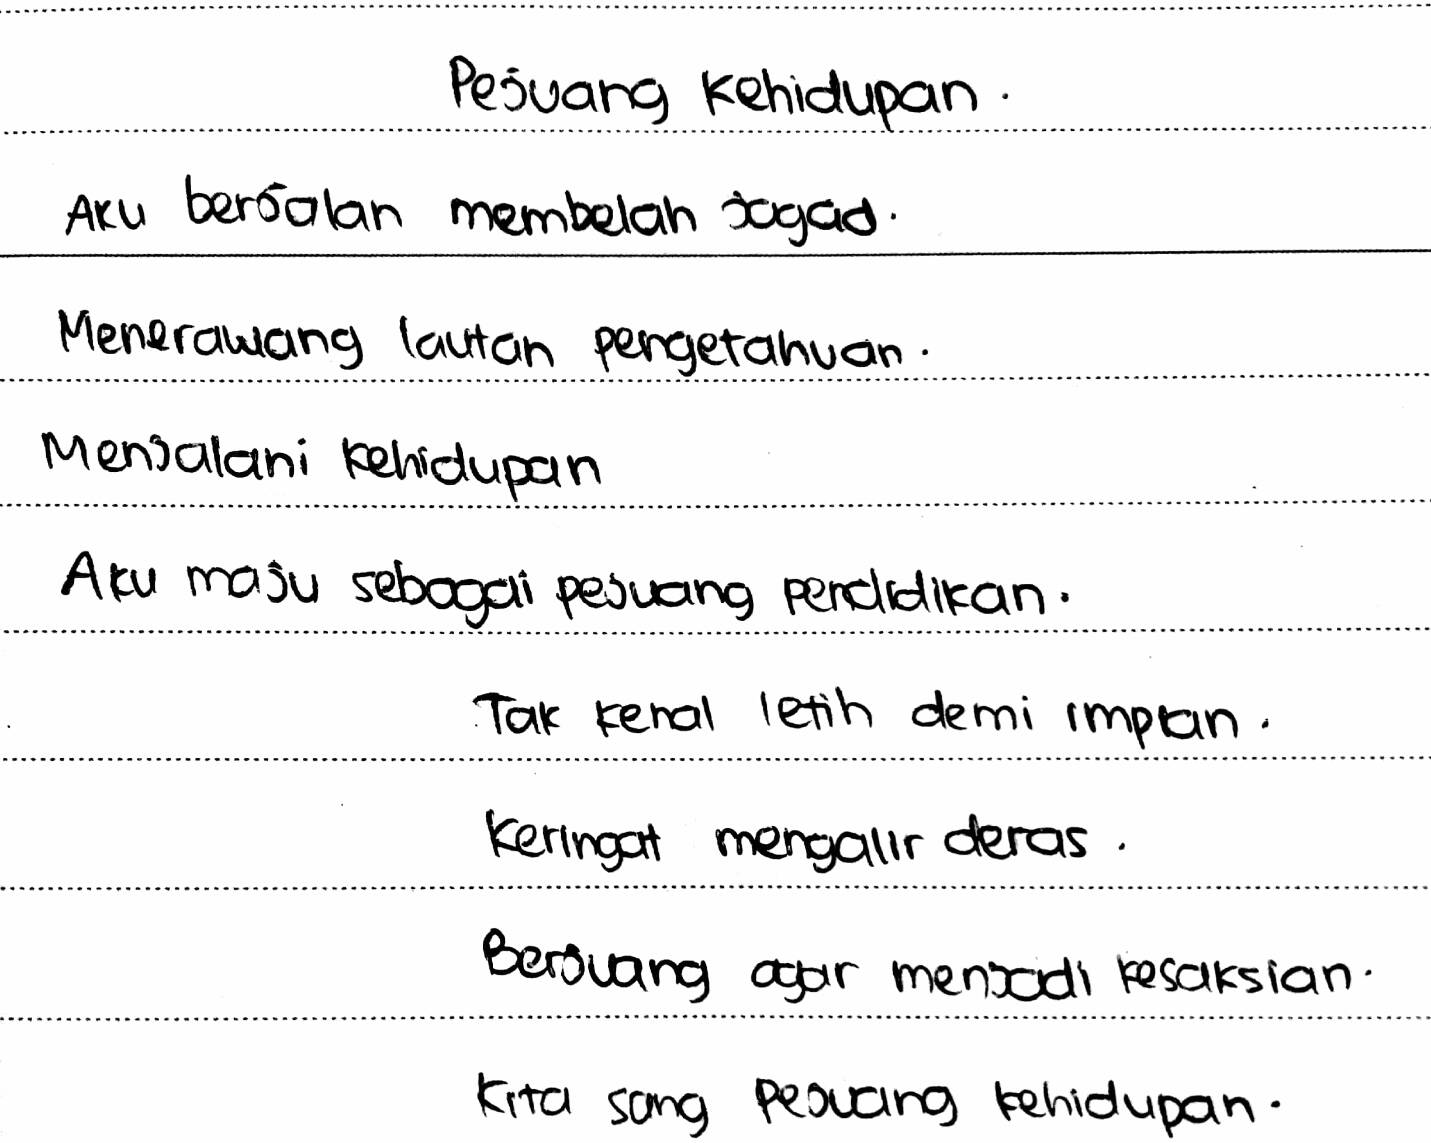 Pejuang Kehidupan.
Aku berjalan membelah jagad.
Menerawang lautan pengetahuan.
Menjalani kehidupan
Aku maju sebagai pejuang pendidikan.
Tak kenal letih demi impian.
Keringat mengalir deras.
Berjuang agar menjadi kesaksian.
Kita sang pejuang kehidupan.